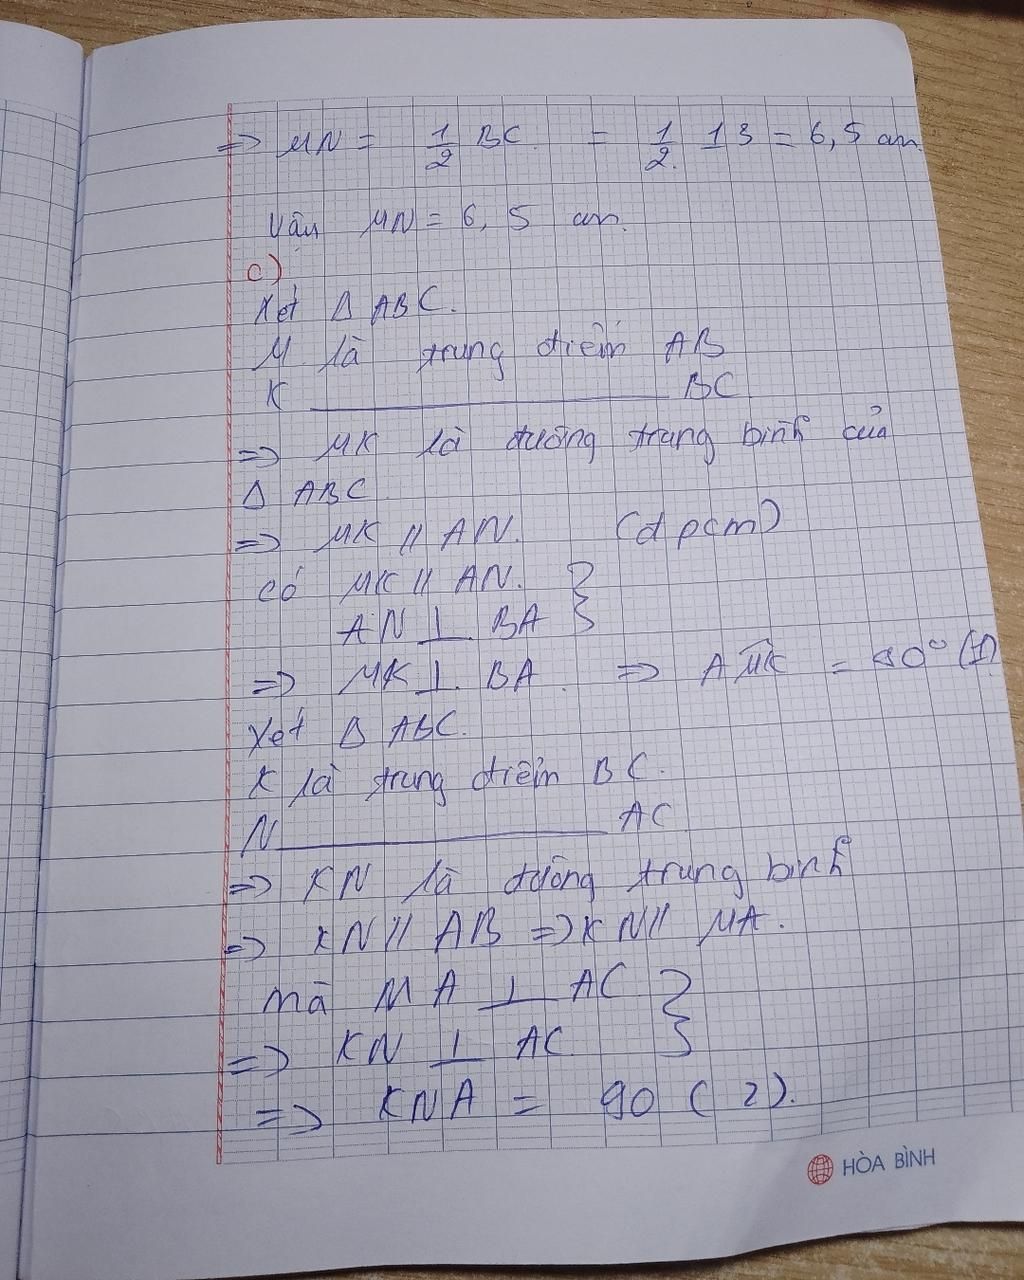 => MN = 1/2 BC. = 1/2. 13 = 6,5 cm.
Vậy MN = 6,5 cm.
c)
Xét Δ ABC.
M là trung điểm AB
K ____________ BC
=> MK là đường trung bình của
Δ ABC
=> MK // AN. (đpcm)
có MK // AN. }
AN ⊥ BA }
=> MK ⊥ BA. => AMK = 90° (1)
Xét Δ ABC.
K là trung điểm BC.
N ____________ AC
=> KN là đường trung bình
=> KN // AB => KN // MA.
mà MA ⊥ AC }
=> KN ⊥ AC. }
=> KNA = 90 (2).
HÒA BÌNH